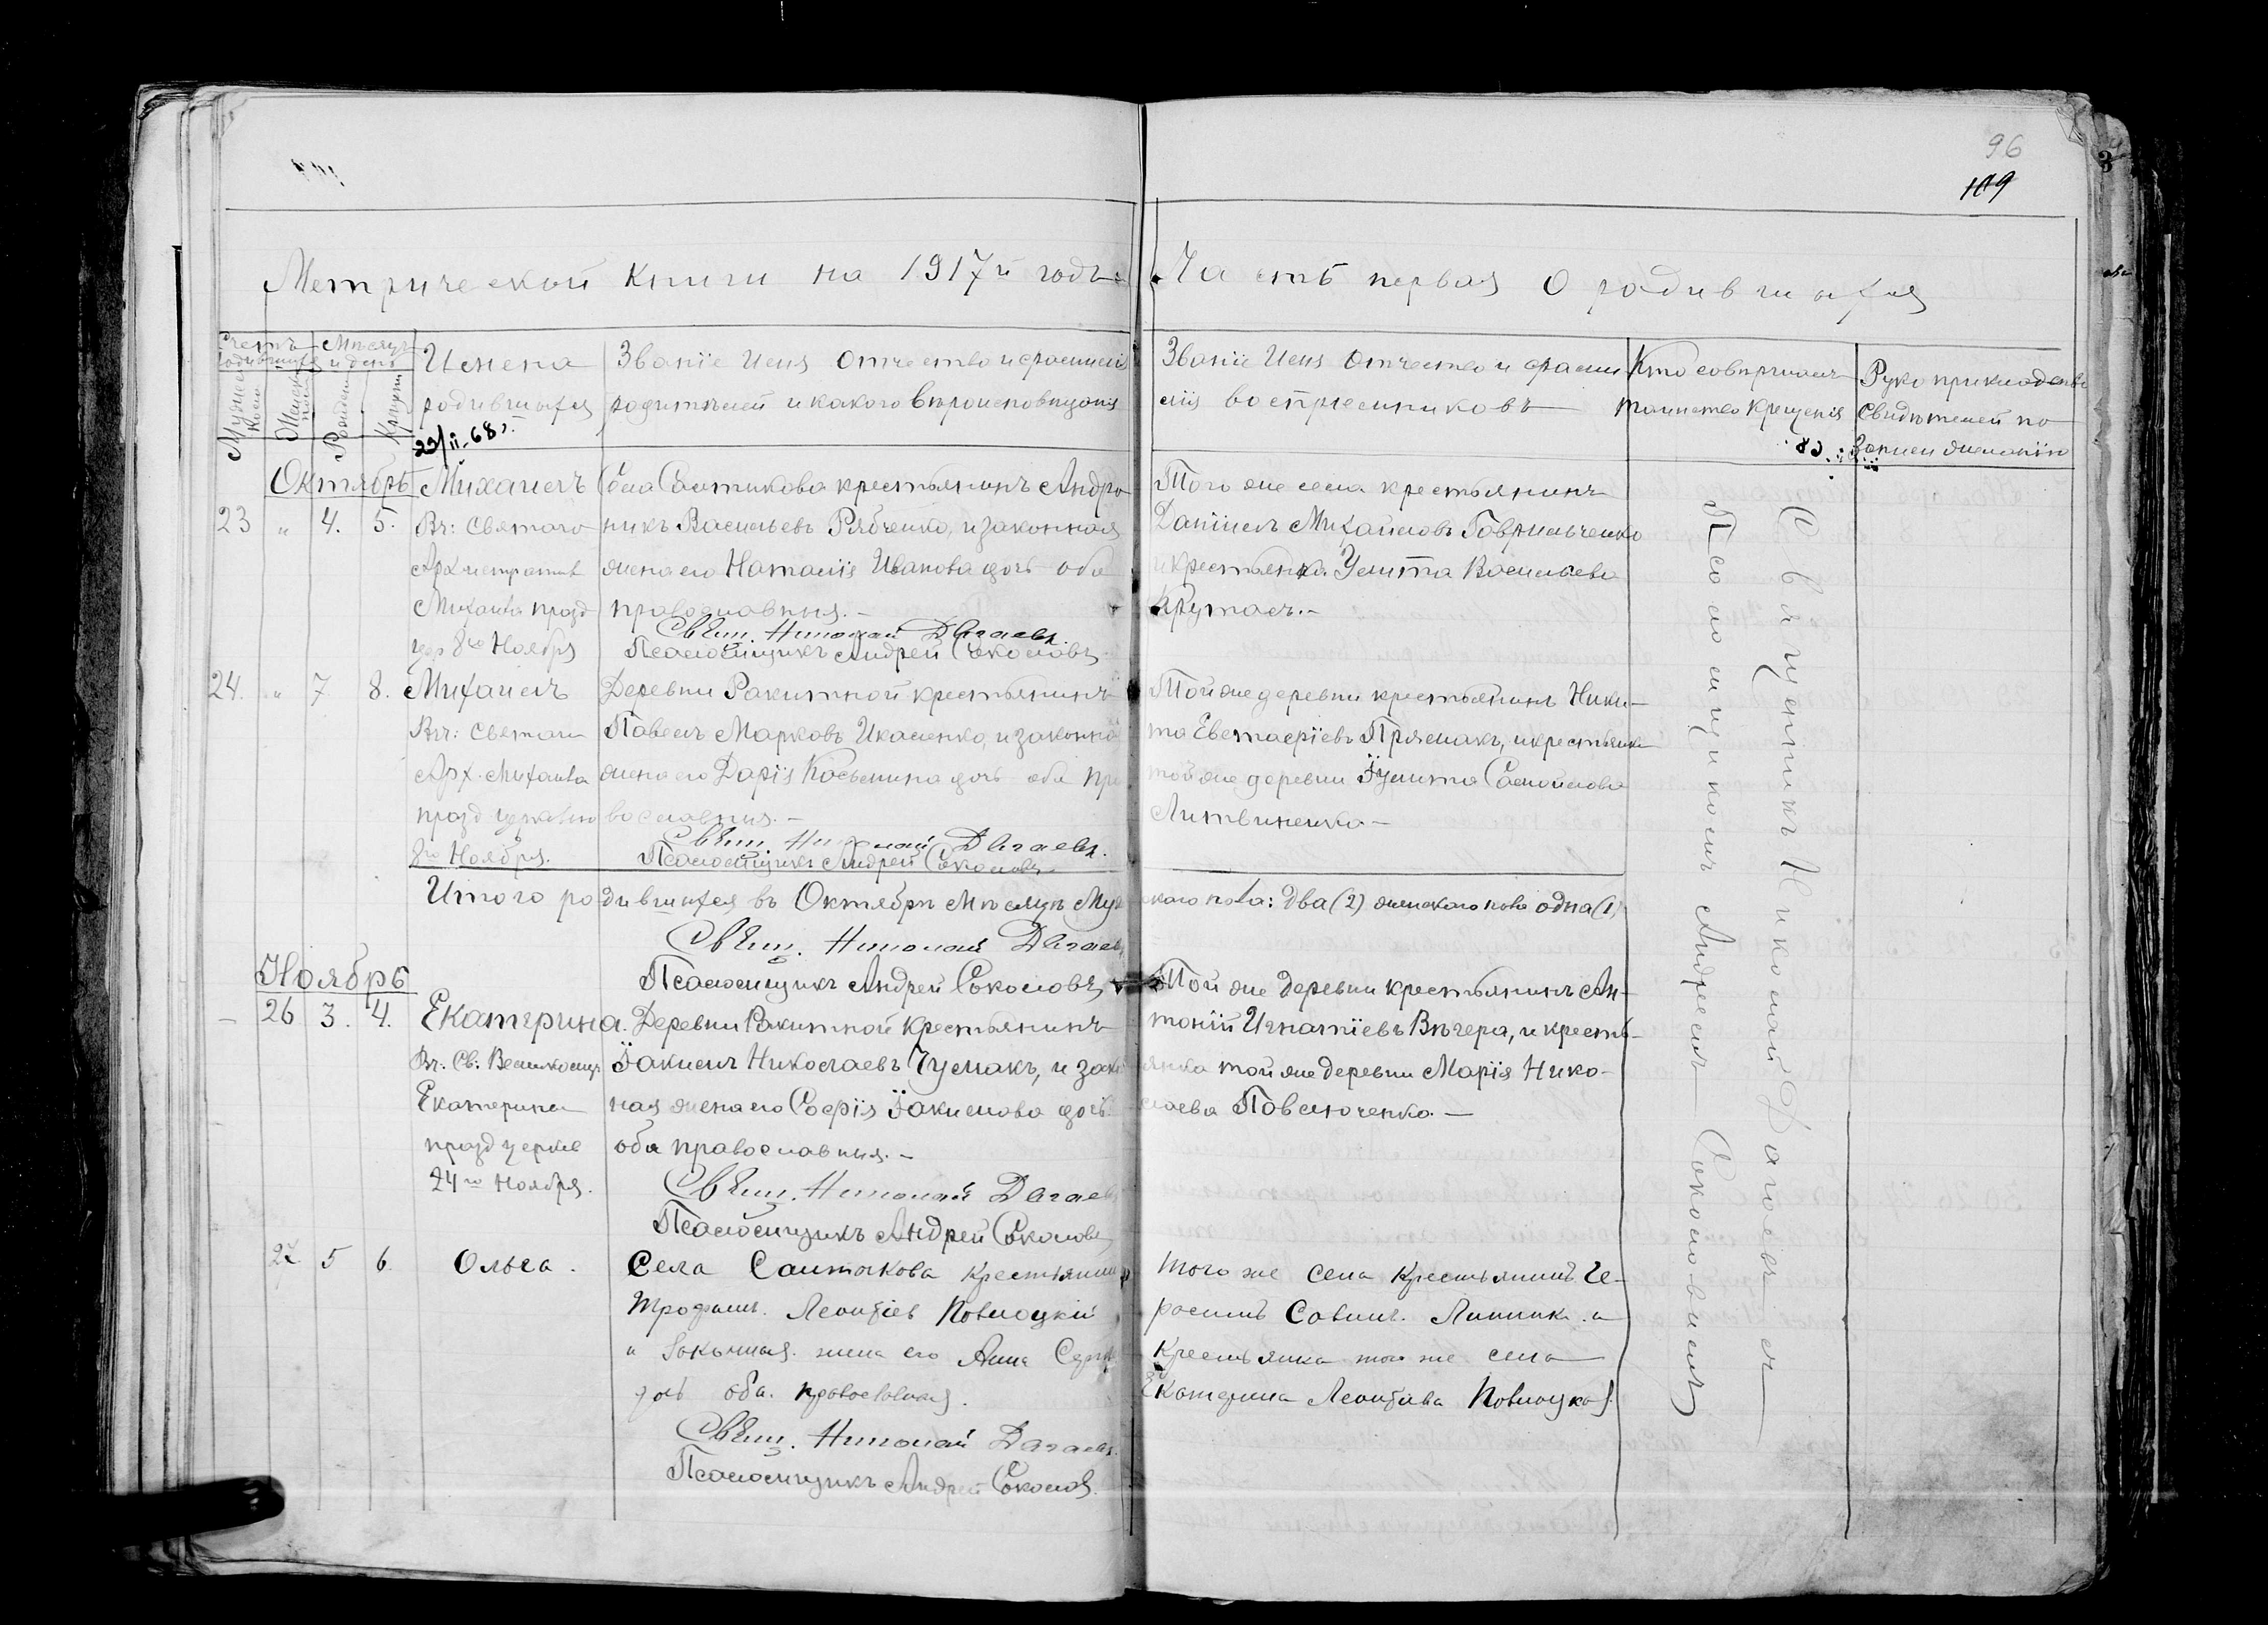 96
109
Метрической Книги на 1917й годъ
Часть первая О родившихся
Счетъ родившихся
Мѣсяцъ и день
Мужеска
Женска
Рожденія
Крещенія
Имена родившихся
Званіе Имя Отчество и фамилія
родителей и какого вѣроисповѣданія
Званіе Имя Отчество и фами
лія воспріемниковъ
Кто совершалъ
таинство крещенія
Рукоприкладство
свидѣтелей по
записи желанію
29/II-68
Октябрь
23 " 4. 5.
Михаилъ
Вч: Святаго
Архистратига
Михаила празд
8го Ноября
Села Салтыкова крестьянинъ Андро
никъ Васильевъ Рябченко, и законная
жена его Наталія Иванова дочь оба
православныя.
Свящ. Николай Дагаевъ.
Псаломщикъ Андрей Соколовъ
Того же села крестьянинъ
Даніилъ Михайловъ Гаврильченко
и крестьянка Улита Васильева
Крутась.
24. " 7 8.
Михаилъ
Вч: Святаго
Арх. Михаила
празд церковью
8го Ноября.
Деревни Ракитной крестьянинъ
Павелъ Марковъ Икаленко, и законна
жена его Дарія Косьмина дочь оба пра
вославныя.
Свящ. Николай Дагаевъ.
Псаломщикъ Андрей Соколовъ
Той же деревни крестьянинъ Ники-
та Евстафіевъ Прямакъ, и крестьянка
той же деревни Іулита Самойлова
Литвиненко
Итого родившихся въ Октябрѣ мѣсяцѣ Муж
ского пола: два (2) женскаго пола одна (1)
Свящ. Николай Дагаевъ
Псаломщикъ Андрей Соколовъ
Ноябрь
– 26 3. 4.
Екатерина.
Вч. Св. Великомуч
Екатерины
празд церков
24го Ноября.
Деревни Ракитной крестьянинъ
Іакимъ Николаевъ Чумакъ, и закон
ная жена его Софія Іакимова дочь
оба православныя.
Свящ. Николай Дагаевъ
Псаломщикъ Андрей Соколовъ
Той же деревни крестьянинъ Ан-
тоній Игнатіевъ Вечера, и кресть-
янка той же деревни Марія Нико-
лаева Павлюченко.
27 5 6.
Ольга.
Села Салтыкова Крестьянинъ
Трофимъ. Леонтіев Повлоцкій
и Законная. жена его Анна
дочь оба. православныя.
Свящ. Николай Дагаевъ.
Псаломщикъ Андрей Соколовъ.
того же села Крестьянинъ Ге-
расимъ Савинъ. и
Крестьянка того же села
Екатерина Леонтіева Повлоцкая.
Священникъ Николай Дагаевъ
Псаломщикомъ Андреемъ Соколовымъ